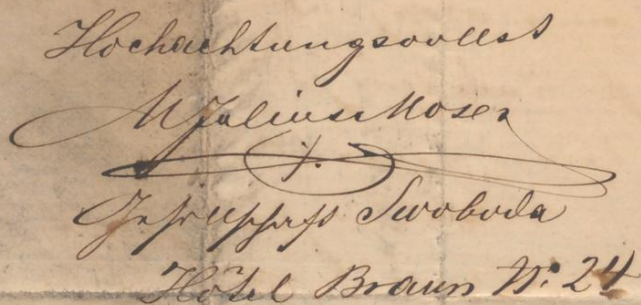 Hochachtungsvollst
M Julius Moser
Gesellschaft Swoboda
Hôtel Braun No. 24